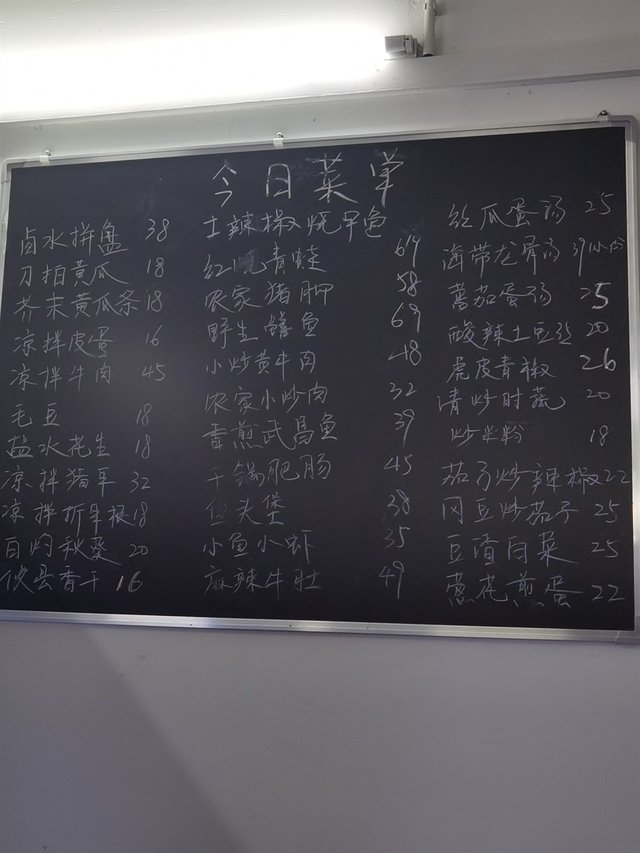 今日菜单
卤水拼盘 38
刀拍黄瓜 18
芥末黄瓜条 18
凉拌皮蛋 16
凉拌牛肉 45
毛豆 18
盐水花生 18
凉拌猪耳 32
凉拌折耳根 18
白灼秋葵 20
攸县香干 16
土辣椒烧甲鱼
红烧青蛙 69
农家猪脚 58
野生鳝鱼 69
小炒黄牛肉 48
农家小炒肉 32
香煎武昌鱼 39
干锅肥肠 45
鱼头煲 38
小鱼小虾 35
麻辣牛肚 49
丝瓜蛋汤 25
海带龙骨汤 39小份
蕃茄蛋汤 25
酸辣土豆丝 20
虎皮青椒 26
清炒时蔬 20
炒米粉 18
茄子炒辣椒 22
冈豆炒茄子 25
豆渣白菜 25
葱花煎蛋 22